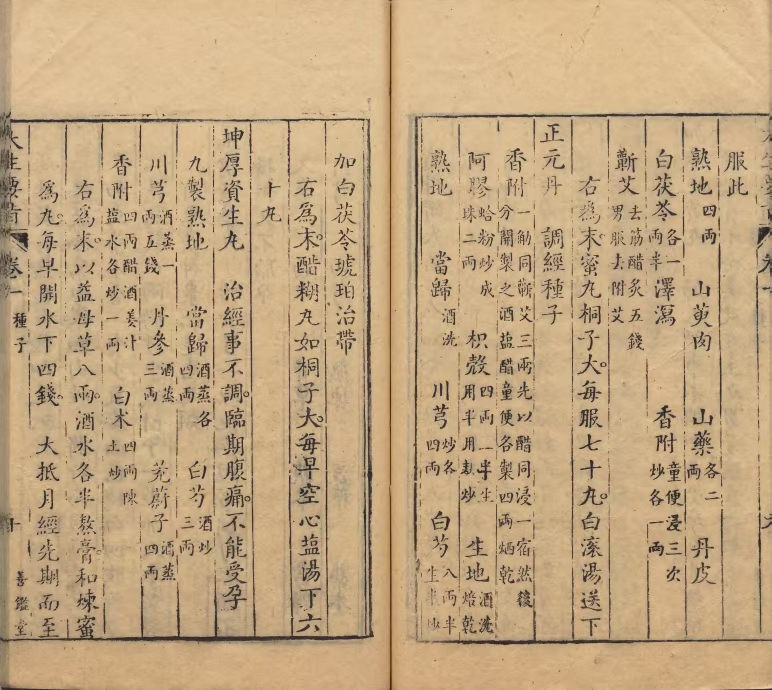 服此
熟地四兩 山萸肉 山藥各二兩 丹皮
白茯苓各一兩半 澤瀉 香附童便浸三次炒各一兩
蘄艾去筋醋炙五錢男服去附艾
右爲末蜜丸桐子大每服七十丸白滚湯送下
正元丹 調經種子
香附一觔同蘄艾三兩先以醋同浸一宿然後分開製之酒盐醋童便各製四兩焙乾
阿膠蛤粉炒成珠二兩 枳殼四兩一半生用半用麸炒 生地酒洗焙乾
熟地 當歸酒洗 川芎炒各四兩 白芍八兩半生半炒
加白茯苓琥珀治帶
右爲末醋糊丸如桐子大每早空心盐湯下六
十丸
坤厚資生丸 治經事不調臨期腹痛不能受孕
九製熟地 當歸酒蒸各四兩 白芍酒炒三兩
川芎酒蒸一兩五錢 丹參酒蒸三兩 茺蔚子酒蒸四兩
香附四兩醋酒姜汁盐水各炒一兩 白术四兩陳土炒
右爲末以益母草八兩酒水各半熬膏和煉蜜
爲丸每早開水下四錢 大抵月經先期而至
大生要旨 卷一 種子 善鑑堂